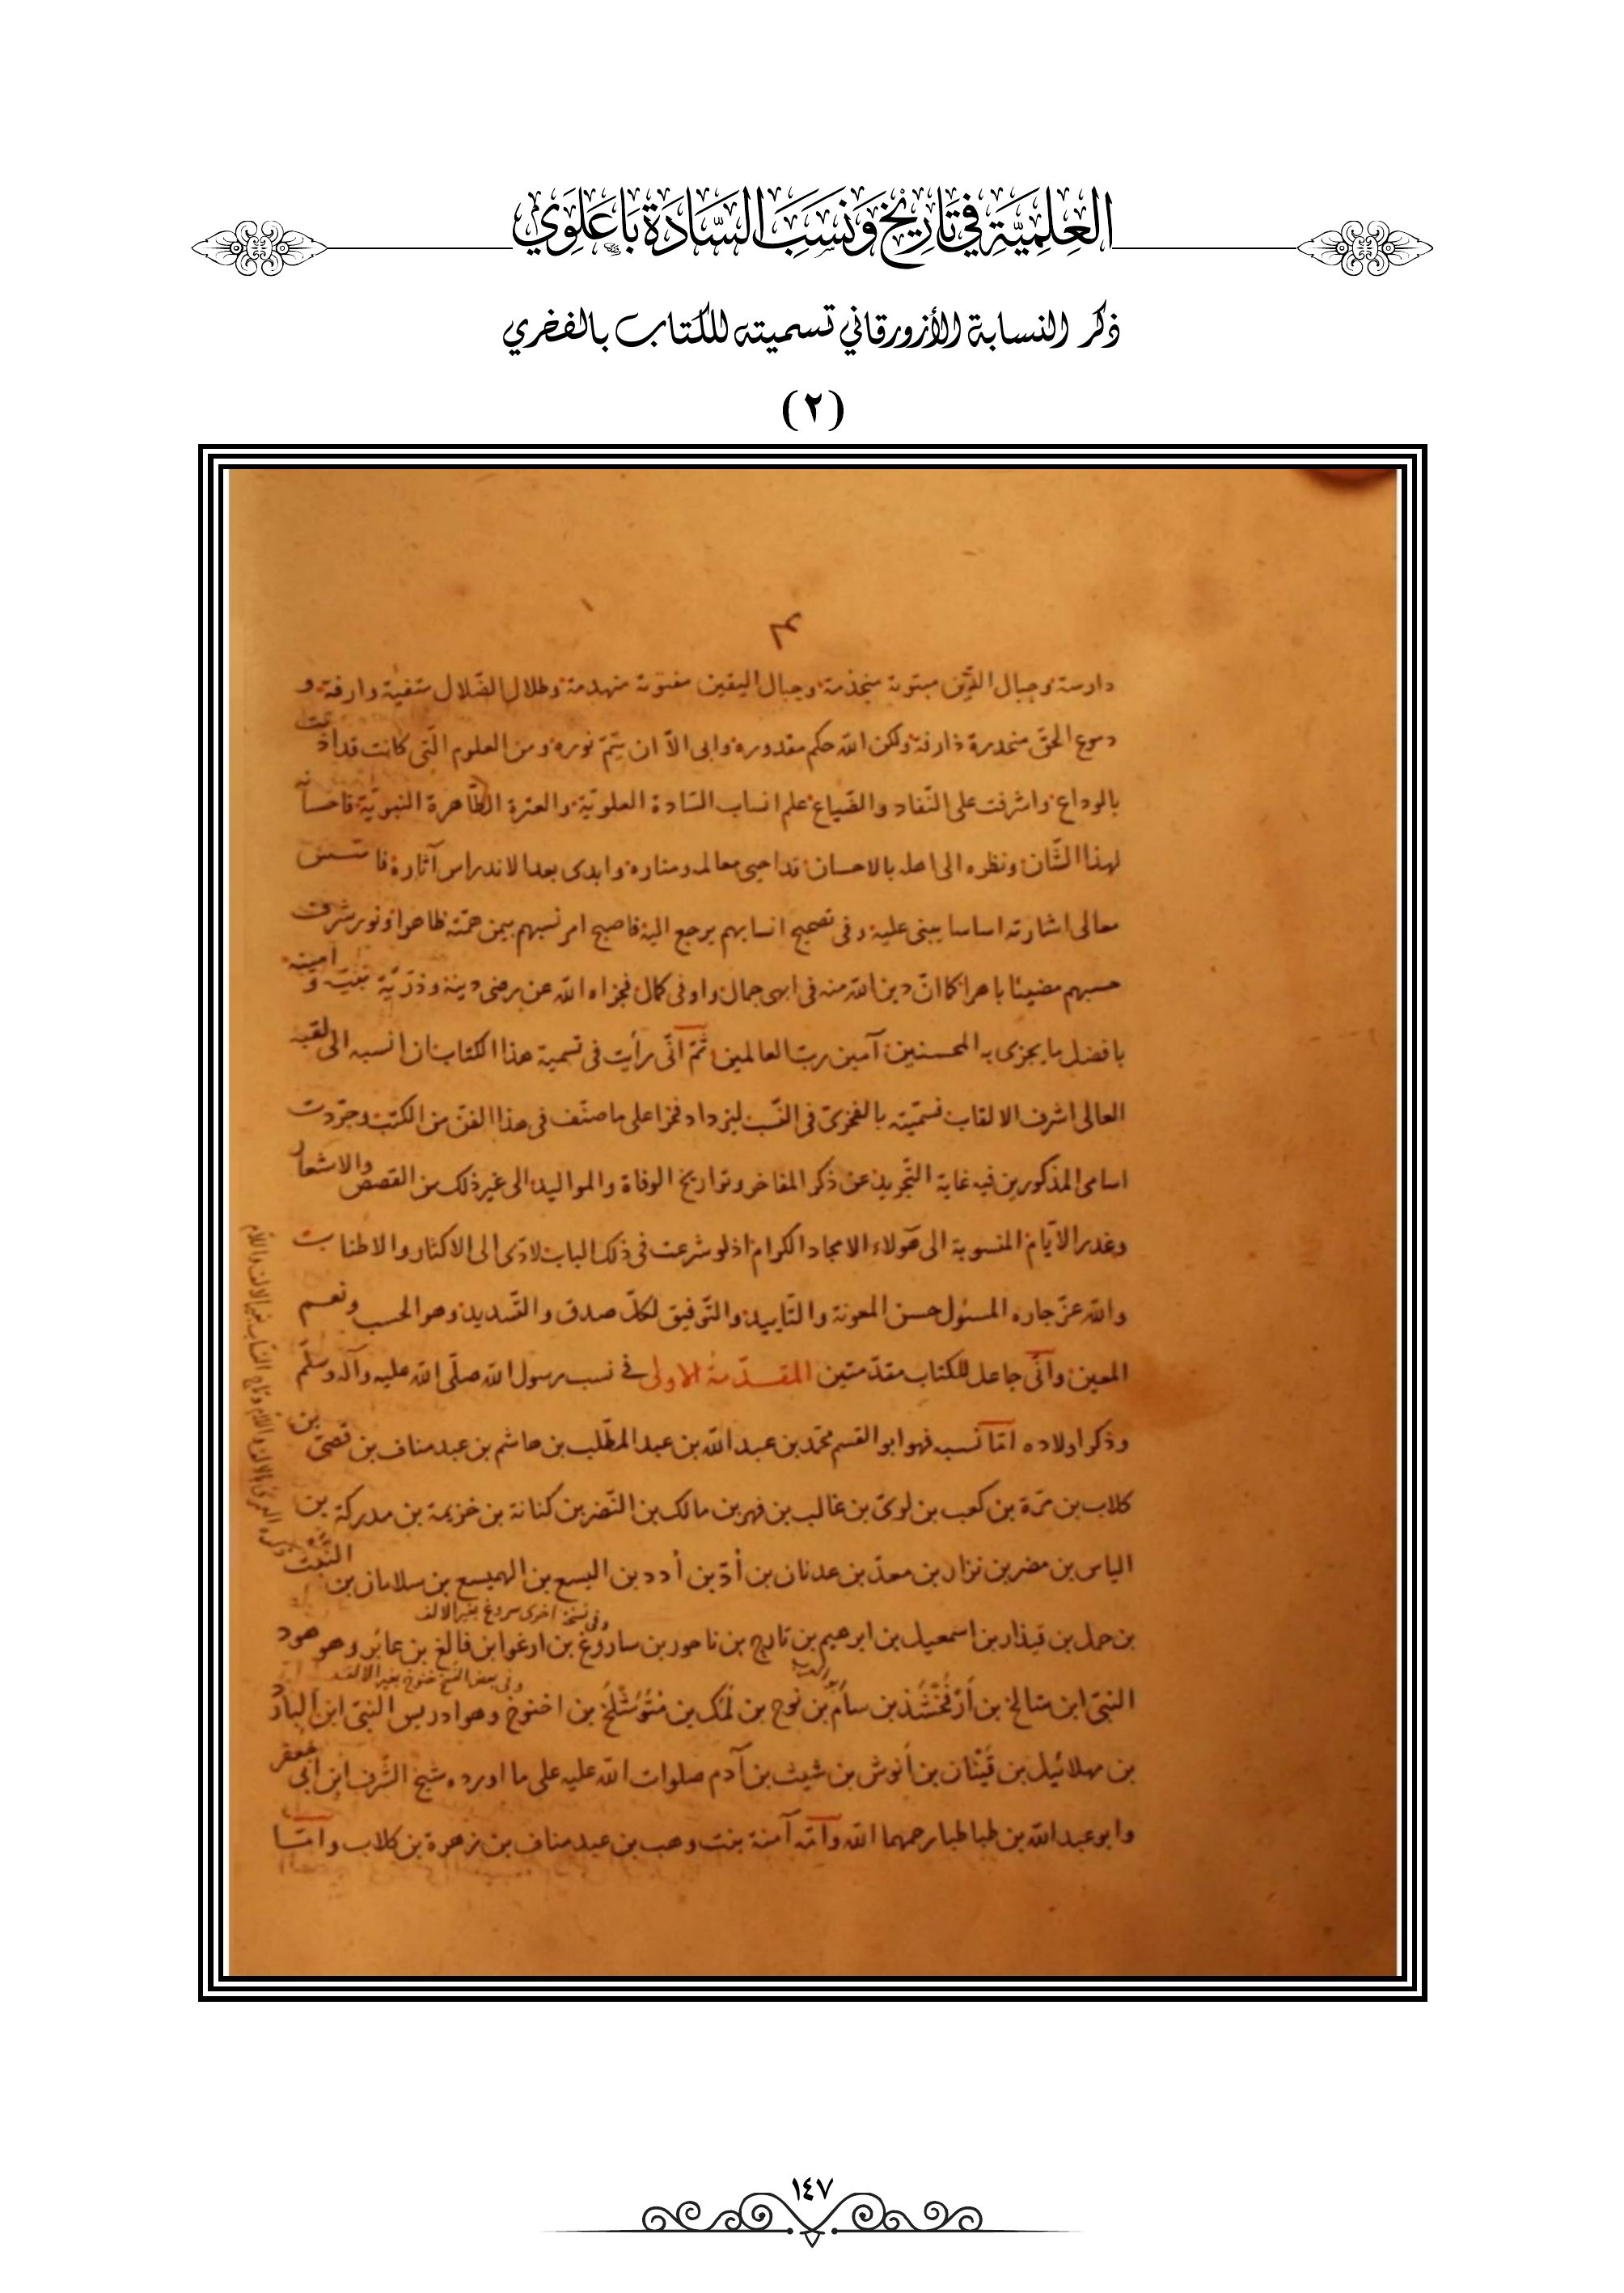 العِلمِيَّة فِي تَارِيْخ وَنَسَبَ السَّادَة بَاعَلوِي
ذكر النسابة الأزورقاني تسميته للكتاب بالفخري
(٢)
دارسة وحبال الدّين مبتوتة منجذمة وجبال اليقين منهدمة وظلال الضّلال متفيئة وارفة و
دموع الحقّ منحدرة ذارفة ولكن الله حكم مقدوره وابى الّا ان يتمّ نوره ومن العلوم الّتى كانت قد اذنت
بالوداع واشرفت على النّفاد والضّياع علم انساب السّادة العلويّة والعترة الطّاهرة النبويّة فاحسانه
لهذا الشّان ونظره الى اهله بالاحسان قد احيى معالمه ومناره وابدى بعد الاندراس آثاره فا
معالى اشارته اساسا يبنى عليه وفى تصحيح انسابهم يرجع اليه فاصبح امر نسبهم بيمن همّته ظاهرا ونور شرف
حسبهم مضيئا باهرا كما انّ دين الله منه فى ابهى جمال واوفى كمال فجزاه الله عن مرضى دينه وذرّيّة نبيّه وامينه
بافضل ما يجزى به المحسنين آمين ربّ العالمين ثمّ انّى رأيت فى تسمية هذا الكتاب ان انسبه الى لقبه
العالى اشرف الالقاب فسمّيته بالفخرىّ فى النّسب ليزداد فخرا على ما صنّف فى هذا الفنّ من الكتب وجرّدت
اسامى المذكورين فيه غاية التّجريد عن ذكر المفاخر وتواريخ الوفاة والمواليد الى غير ذلك من القصص والاشعار
وغدر الايّام المنسوبة الى هؤلاء الامجاد الكرام اذ لو شرعت فى ذلك الباب لادّى الى الاكثار والاطناب
والله عزّ جاره المسئول حسن المعونة والتّاييد والتّوفيق لكلّ صدق والتّسديد وهو الحسب ونعم
المعين وانّى جاعل للكتاب مقدّمتين المقدّمة الاولى فى نسب رسول الله صلّى الله عليه وآله وسلّم
وذكر اولاده امّا نسبه فهو ابو القسم محمّد بن عبد الله بن عبد المطّلب بن هاشم بن عبد مناف بن قصىّ بن
كلاب بن مرّة بن كعب بن لوىّ بن غالب بن فهر بن مالك بن النّضر بن كنانة بن خزيمة بن مدركة بن
الياس بن مضر بن نزار بن معدّ بن عدنان بن أدّ بن أدد بن اليسع بن الهميسع بن سلامان بن النّبت
وفى نسخة اخرى سروغ بغير الالف
بن حمل بن قيذار بن اسمعيل بن ابرهيم بن تارح بن ناحور بن ساروغ بن ارغوا بن فالغ بن عابر وهو هود
وفى بعض النّسخ خنوخ بغير الالف
النبىّ ابن شالخ بن أَرْفَخْشَذ بن سام بن نوح بن لمك بن متوشلخ بن اخنوخ وهو ادريس النبىّ ابن اليارد
بن مهلائيل بن قَيْنان بن أنوش بن شيث بن آدم صلوات الله عليه على ما اورده شيخ الشّرف ابن ابى جعفر
وابو عبد الله بن طباطبا رحمهما الله وامّه آمنة بنت وهب بن عبد مناف بن زهرة بن كلاب وامّا
١٤٧